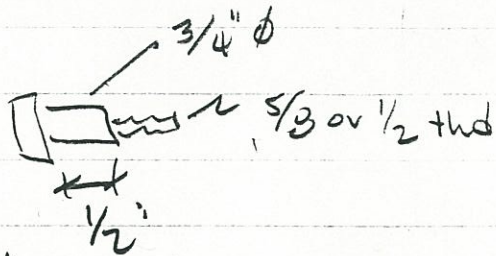 3/4" φ
5/8 or 1/2 thd
1/2"